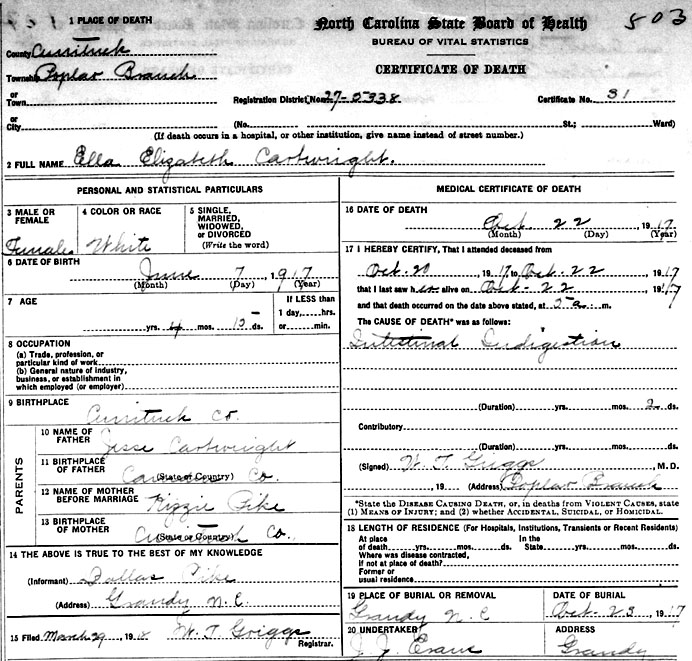 1 PLACE OF DEATH
North Carolina State Board of Health
503
BUREAU OF VITAL STATISTICS
CERTIFICATE OF DEATH
County Currituck
Township Poplar Branch
or Town
Registration District No. 27-0338 Certificate No. 31
or City (No. St.; Ward)
(If death occurs in a hospital, or other institution, give name instead of street number.)
2 FULL NAME Ella Elizabeth Cartwright.
PERSONAL AND STATISTICAL PARTICULARS
3 MALE OR FEMALE Female
4 COLOR OR RACE White
5 SINGLE, MARRIED, WIDOWED, or DIVORCED (Write the word)
6 DATE OF BIRTH June 7, 1917
(Month) (Day) (Year)
7 AGE
yrs. 4 mos. 15 ds.
If LESS than 1 day, hrs. or min.
8 OCCUPATION
(a) Trade, profession, or particular kind of work
(b) General nature of industry, business, or establishment in which employed (or employer)
9 BIRTHPLACE Currituck Co.
PARENTS
10 NAME OF FATHER Jesse Cartwright
11 BIRTHPLACE OF FATHER Co.
(State or Country)
12 NAME OF MOTHER BEFORE MARRIAGE Kizzie Pike
13 BIRTHPLACE OF MOTHER Currituck Co.
(State or Country)
14 THE ABOVE IS TRUE TO THE BEST OF MY KNOWLEDGE
(Informant) Dallas Pike
(Address) Grandy N.C
15 Filed March 29 1918 W. T. Griggs
Registrar.
MEDICAL CERTIFICATE OF DEATH
16 DATE OF DEATH Oct. 22 1917
(Month) (Day) (Year)
17 I HEREBY CERTIFY, That I attended deceased from
Oct. 20 1917 to Oct. 22 1917
that I last saw her alive on Oct. 22 1917
and that death occurred on the date above stated, at 5 a. m.
The CAUSE OF DEATH* was as follows:
Intestinal Indigestion
(Duration) yrs. mos. 2 ds.
Contributory
(Duration) yrs. mos. ds.
(Signed) W. T. Griggs, M.D.
, 19 (Address) Poplar Branch
*State the DISEASE CAUSING DEATH, or, in deaths from VIOLENT CAUSES, state (1) MEANS OF INJURY; and (2) whether ACCIDENTAL, SUICIDAL, or HOMICIDAL.
18 LENGTH OF RESIDENCE (For Hospitals, Institutions, Transients or Recent Residents)
At place of death yrs. mos. ds. In the State yrs. mos. ds.
Where was disease contracted, if not at place of death?
Former or usual residence
19 PLACE OF BURIAL OR REMOVAL Grandy N.C
DATE OF BURIAL Oct. 23 1917
20 UNDERTAKER J. J. Evans
ADDRESS Grandy